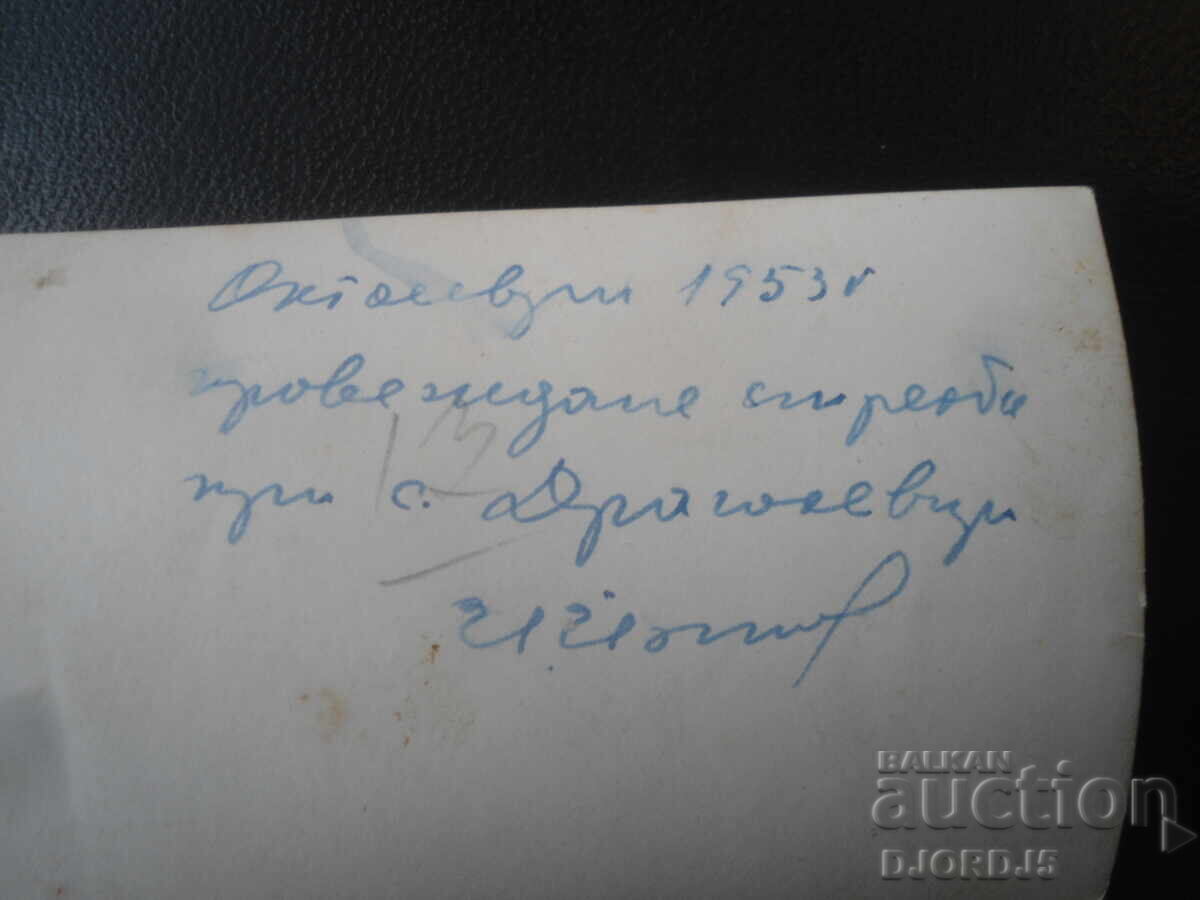 Октомври 1953 г
провеждане стрелби
при с. Драгоевци
13
BALKAN
auction
DJORDJ5